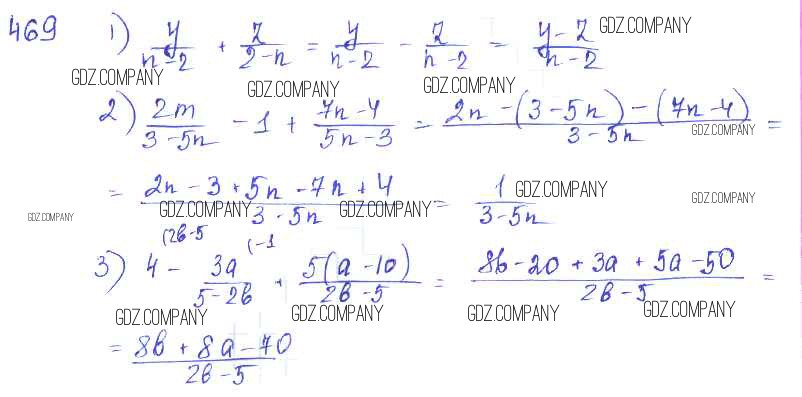 469 1) y/(n-2) + z/(2-n) = y/(n-2) - z/(n-2) = (y-z)/(n-2) GDZ.COMPANY
GDZ.COMPANY GDZ.COMPANY GDZ.COMPANY
2) 2m/(3-5n) - 1 + (7n-4)/(5n-3) = (2n-(3-5n)-(7n-4))/(3-5n) = GDZ.COMPANY
= (2n-3+5n-7n+4)/(3-5n) = 1/(3-5n) GDZ.COMPANY GDZ.COMPANY
GDZ.COMPANY GDZ.COMPANY GDZ.COMPANY
(2b-5 (-1
3) 4 - 3a/(5-2b) + 5(a-10)/(2b-5) = (8b-20+3a+5a-50)/(2b-5) =
GDZ.COMPANY GDZ.COMPANY GDZ.COMPANY GDZ.COMPANY
= (8b+8a-70)/(2b-5)